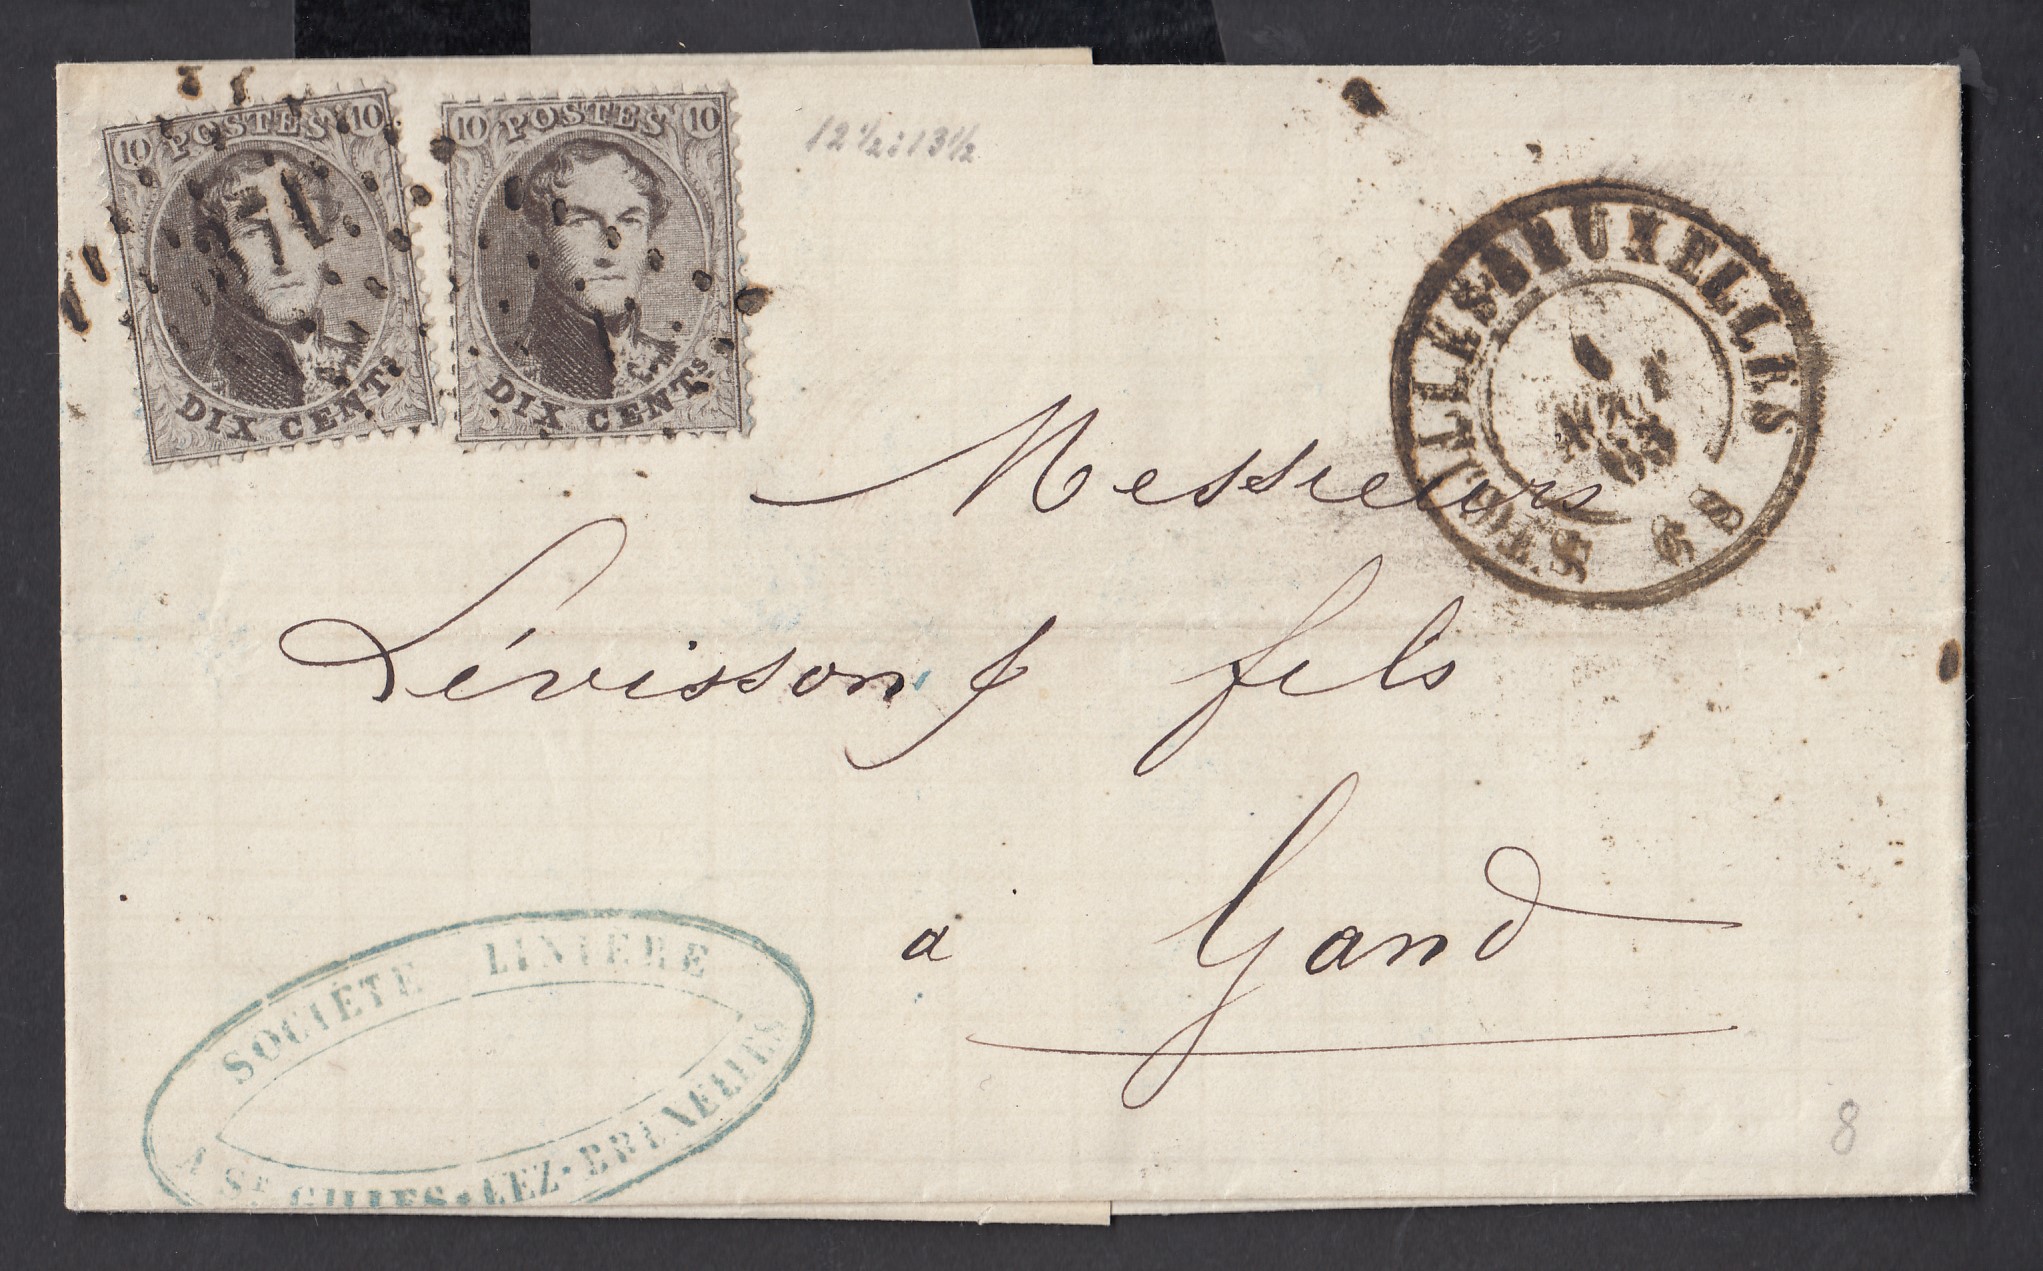 10 POSTES 10
DIX CENTS
10 POSTES 10
DIX CENTS
12 ½ : 13 ½
ST GILLES BRUXELLES
63
Messieurs
Lévisson & fils
à Gand
SOCIÉTÉ LINIÈRE
A ST GILLES-LEZ-BRUXELLES
8